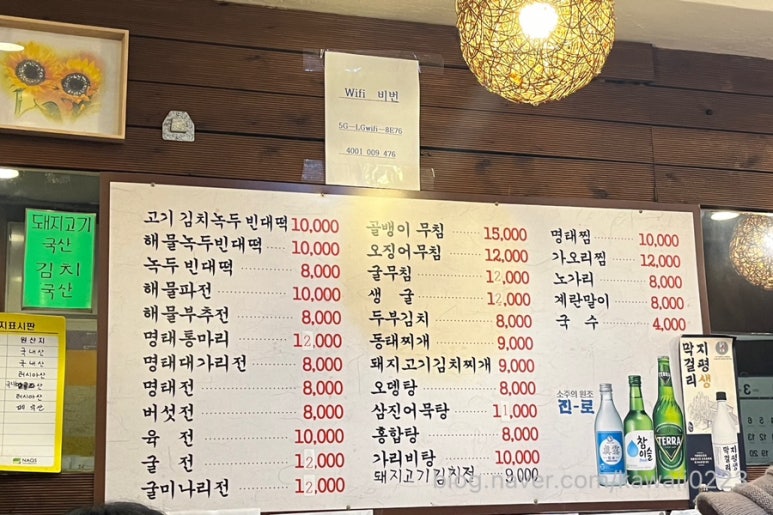 Wifi 비번
5G-LGwifi-8E76
4001 009 476
돼지고기
국산
김치
국산
지표시판
원산지
국내산
국내산
러시아산
러시아산
NAQS
고기 김치녹두 빈대떡 10,000
해물녹두빈대떡 10,000
녹두 빈대떡 8,000
해물파전 10,000
해물부추전 8,000
명태통마리 12,000
명태대가리전 8,000
명태전 8,000
버섯전 8,000
육 전 10,000
굴 전 12,000
굴미나리전 12,000
골뱅이 무침 15,000
오징어무침 12,000
굴무침 12,000
생 굴 12,000
두부김치 8,000
동태찌개 9,000
돼지고기김치찌개 9,000
오뎅탕 8,000
삼진어묵탕 11,000
홍합탕 8,000
가리비탕 10,000
돼지고기김치전 9,000
명태찜 10,000
가오리찜 12,000
노가리 8,000
계란말이 8,000
국 수 4,000
소주의 원조
진-로
참이슬
TERRA
지평생
막걸리
지평생
막걸리
3
blog.naver.com/kawaii0223